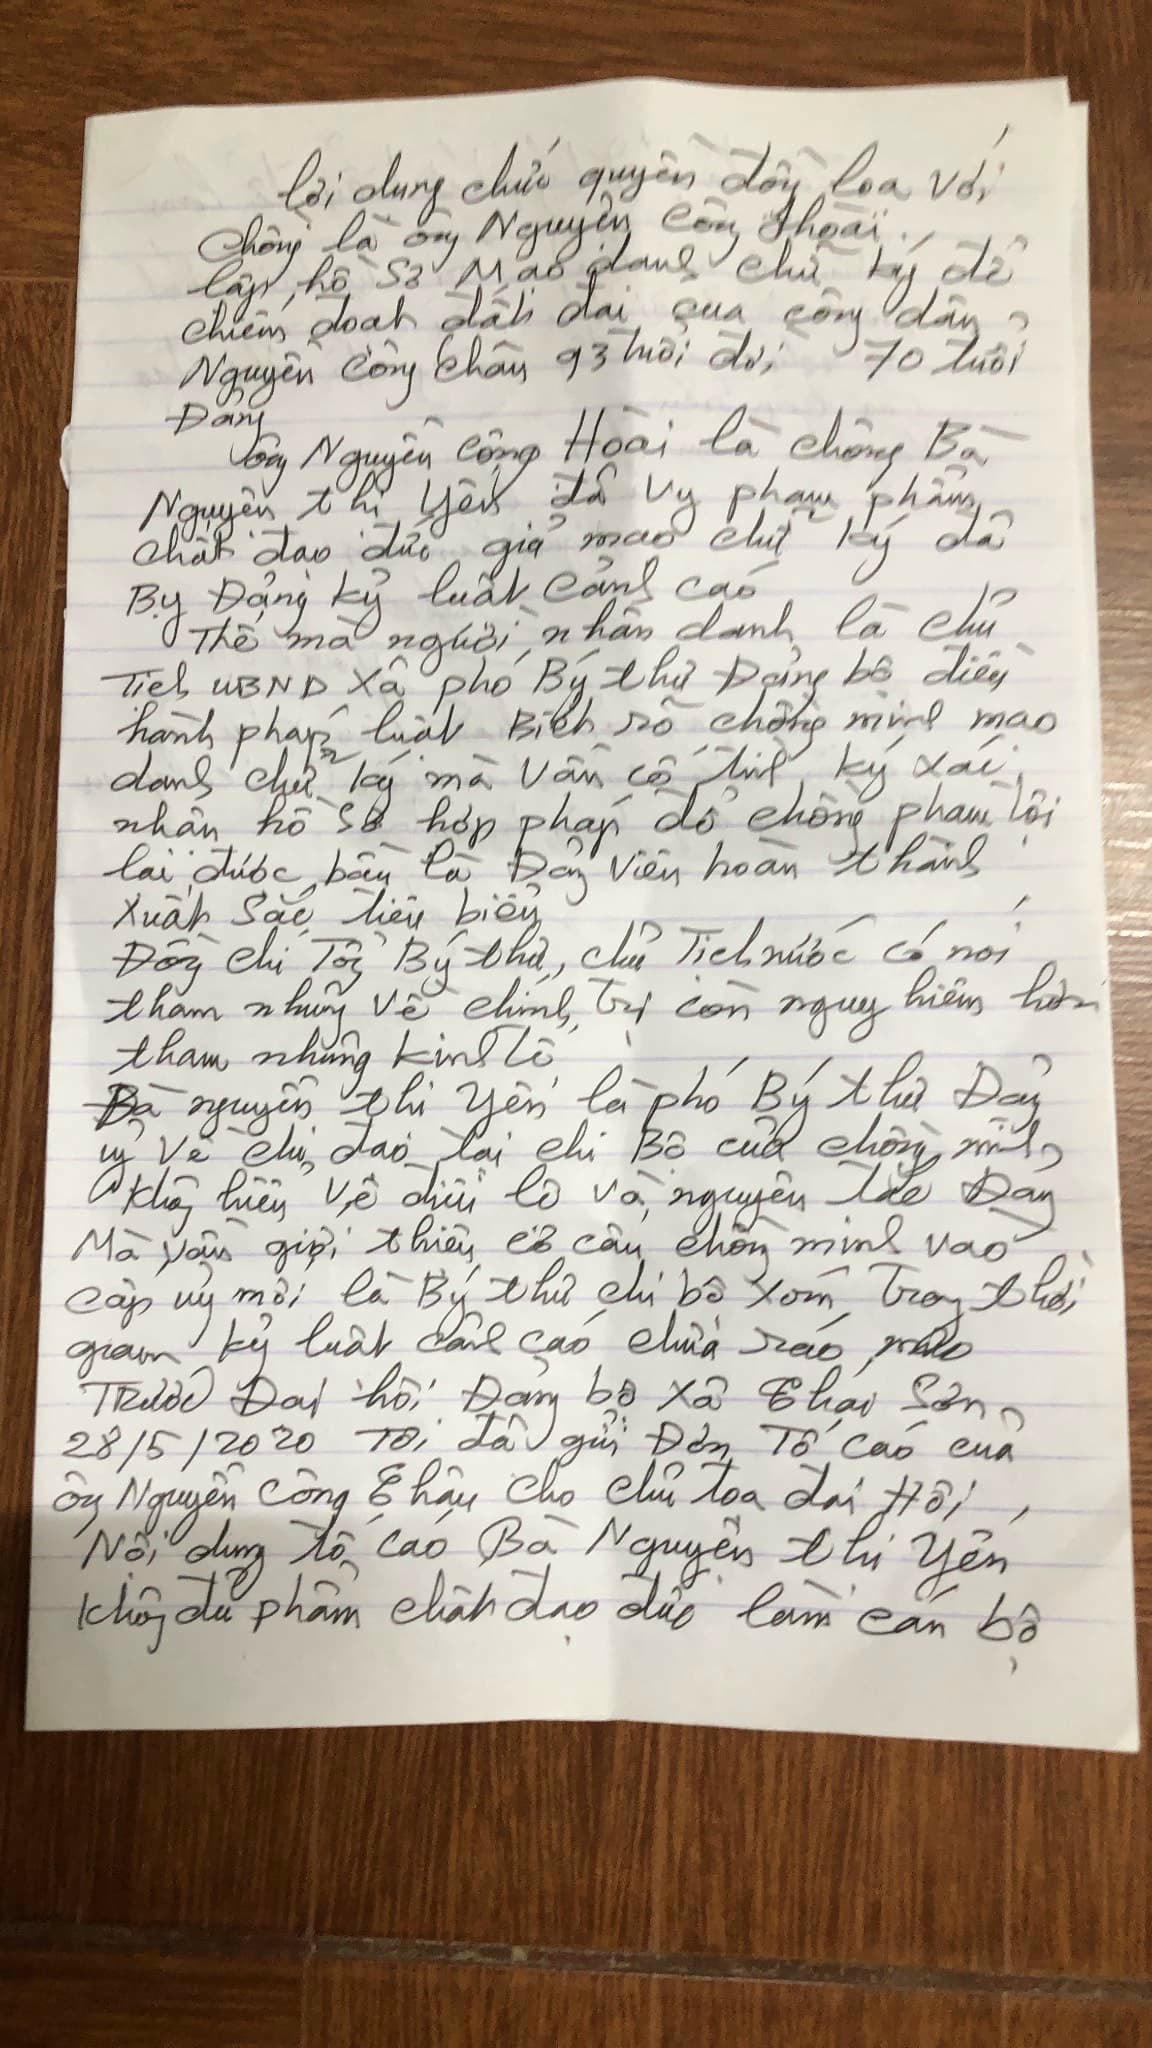 lợi dung chức quyền đồng loa với
chồng là ông Nguyễn Công Hoài.
lập hồ sơ Mao danh chữ ký để
chiếm đoat đất đai của công dân
Nguyễn Công Chân 93 tuổi đời 70 tuổi
Đảng
ông Nguyễn Công Hoài là chồng Bà
Nguyễn thi Yến đã vy pham phẩm
chất đao đức giả mao chữ ký đã
By Đảng kỷ luật cảnh cáo
Thế mà người nhân danh là chủ
Tich UBND xã phó Bý thư Đảng bộ điều
hành pháp luật Biết rõ chồng mình mao
danh chữ ký mà vẫn cố tình ký xác
nhân hồ sơ hợp pháp để chồng pham tội
lai được bầu là Đảng viên hoàn thành
xuất sắc tiêu biểu
Đồng chí Tổng Bý thư, chủ Tich nước có nói
tham nhũng về chính trị còn nguy hiểm hơn
tham nhũng kinh tế
Bà nguyễn thi Yến là phó Bý thư Đảng
uỷ về chỉ đao tai chi Bộ của chồng mình,
không hiểu về điều lệ và nguyên tắc Đảng
Mà vẫn giới thiệu cơ cấu chồng mình vào
cấp uỷ mới là Bý thư chi bộ xóm Trong thời
gian kỷ luật cảnh cáo chưa ráo mực
Trước Đai hôi Đảng bộ xã Thái Sơn
28/5/2020 Tôi đã gửi Đơn Tố cáo của
ông Nguyễn Công Thâu cho chủ toa đai Hôi,
Nôi dung tố cáo Bà Nguyễn thi Yến
không đủ phẩm chất đao đức làm cán bộ